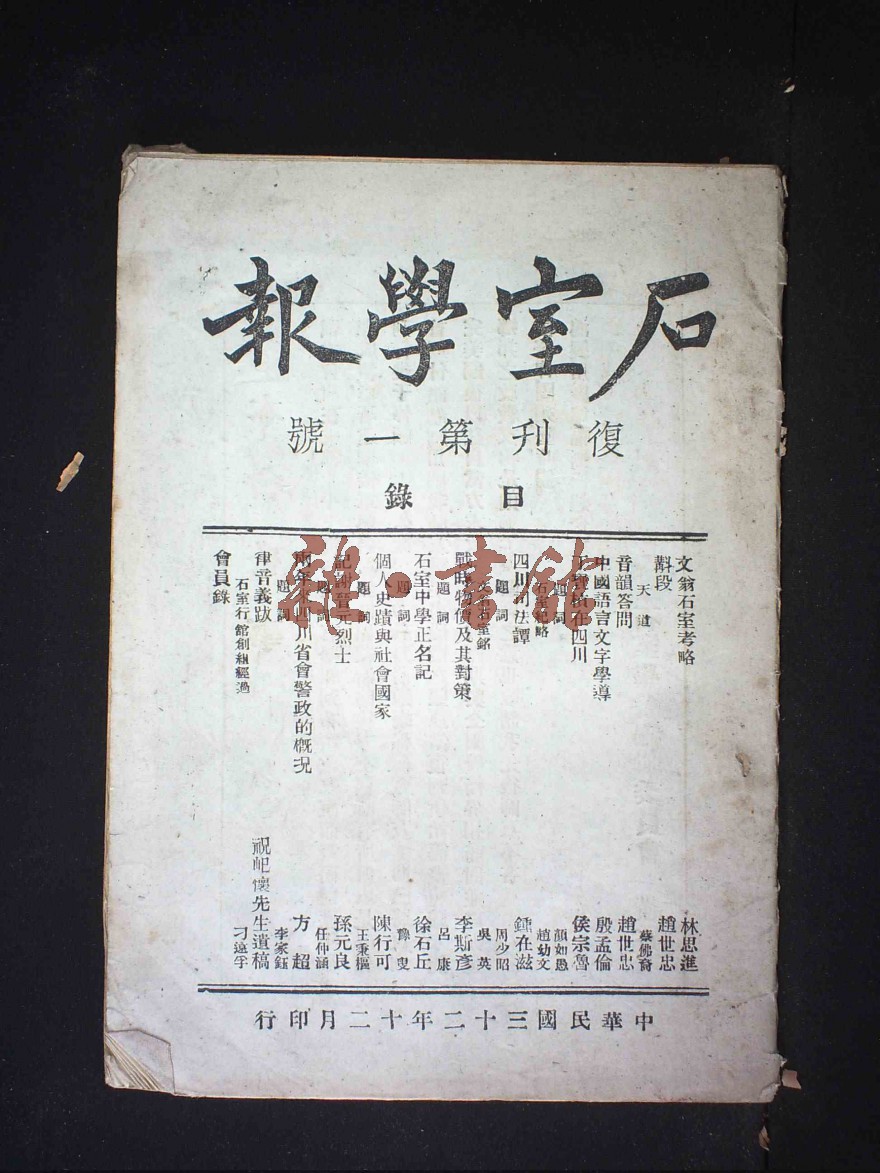 石室學報
復刊第一號
目錄
文翁石室考略 林思進
斠段 趙世忠
天道 蔡佛裔
音韻答問 趙世忠
中國語言文字學導 殷孟倫
在四川 侯宗魯
題詞 顏如愚
石室紀略 趙幼文
四川司法譚 鍾在滋
題詞 周少昭
石室銘 吳英
戰時物價及其對策 李斯彥
題詞 呂康
石室中學正名記 徐石丘
題詞 豫叟
個人史蹟與社會國家 陳行可
題詞 王秉樞
記謝晉元烈士 孫元良
題詞 任仲涵
兩年來四川省會警政的概況 方超
題詞 李家鈺
律音義跋 祝屺懷先生遺稿
石室行館創組經過 刁遠孚
會員錄
中華民國三十二年十二月印行
雜·書館